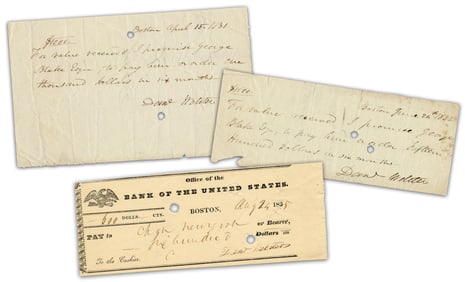 Boston April 15th 1831
For value received I promise George
Blake Esqr to pay him or order one
thousand dollars in six months
Danl Webster
Boston June 24th
For value received I promise George
Blake Esqr to pay him or order fifteen
Hundred dollars in six months
Danl Webster
Office of the
BANK OF THE UNITED STATES.
600 DOLLS. CTS. BOSTON, Aug 24 1835
PAY to or Bearer,
six hundred Dollars
To the Cashier. Danl Webster